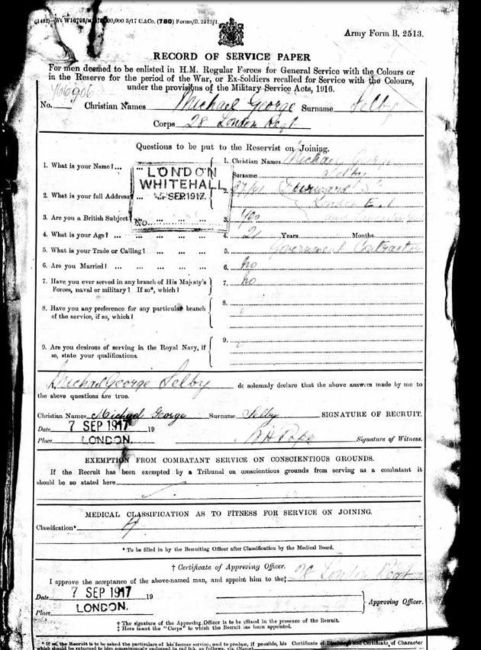 Army Form B. 2513.
RECORD OF SERVICE PAPER
For men deemed to be enlisted in H.M. Regular Forces for General Service with the Colours or
in the Reserve for the period of the War, or Ex-Soldiers recalled for Service with the Colours,
under the provisions of the Military Service Acts, 1916.
No. Christian Names Michael George Surname Selby
Corps 28 London Regt
Questions to be put to the Reservist on Joining.
1. What is your Name? 1. Christian Names Michael George
Surname Selby
LONDON
WHITEHALL
SEP 1917
No.
2. What is your full Address?
3. Are you a British Subject? 3.
4. What is your Age? 4. 21 Years Months
5. What is your Trade or Calling? 5. Government Contractor
6. Are you Married? 6. No
7. Have you ever served in any branch of His Majesty's 7. No
Forces, naval or military? If so*, which?
8. Have you any preference for any particular branch 8.
of the service, if so, which?
9. Are you desirous of serving in the Royal Navy, if 9.
so, state your qualifications
Michael George Selby do solemnly declare that the above answers made by me to
the above questions are true.
Christian Names Michael George Surname Selby SIGNATURE OF RECRUIT.
Date 7 SEP 1917 19
Place LONDON. Signature of Witness.
EXEMPTION FROM COMBATANT SERVICE ON CONSCIENTIOUS GROUNDS.
If the Recruit has been exempted by a Tribunal on conscientious grounds from serving as a combatant it
should be so stated here
MEDICAL CLASSIFICATION AS TO FITNESS FOR SERVICE ON JOINING.
Classification*
* To be filled in by the Recruiting Officer after Classification by the Medical Board.
† Certificate of Approving Officer.
I approve the acceptance of the above-named man, and appoint him to the‡ 28 London Regt
Date 7 SEP 1917 19
Place LONDON. Approving Officer.
† The signature of the Approving Officer is to be affixed in the presence of the Recruit.
‡ Here insert the "Corps" to which the Recruit has been appointed.